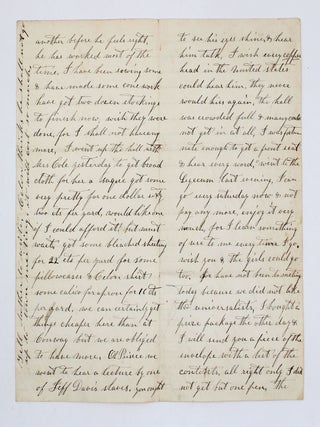 another before he feels right,
he has worked most of the
time, I have been sewing some
& have made some cone work
have got two dozen stockings
to finish now, wish they were
done, for I shall not have any
more, I went up the hill with
Mrs Cole yesterday to get broad
cloth for her a sugar got some
very pretty for one dollar sixty
two cts per yard, would like one
if I could afford it but must
wait, got some bleached sheeting
for 22 cts per yard for some
pillowcases &
some calico for apron for 10 cts
per yard, we can certainly get
things cheaper here than at
Conway but we are obliged
to have more, Oh Prince we
went to hear a lecture by one
of Jeff Davis slaves, you ought
to see his eyes shine & hear
him talk, I wish every copper
head in the United states
could hear him, they never
would his again, the hall
was crowded full & many could
not get in at all, I was fortu
nate enough to get a front seat
& hear every word, went to the
Lyceum last evening, I can
go very saturday now & not
pay any more, enjoy it very
much, for I learn something
of use to me every time I go,
wish you & the girls could go
too, We have not been to meeting
today because we did not like
the universalists, I bought a
prize package the other day &
I will send you a piece of the
envelope with a list of the
contents, all right only I did
not get but one pen, the